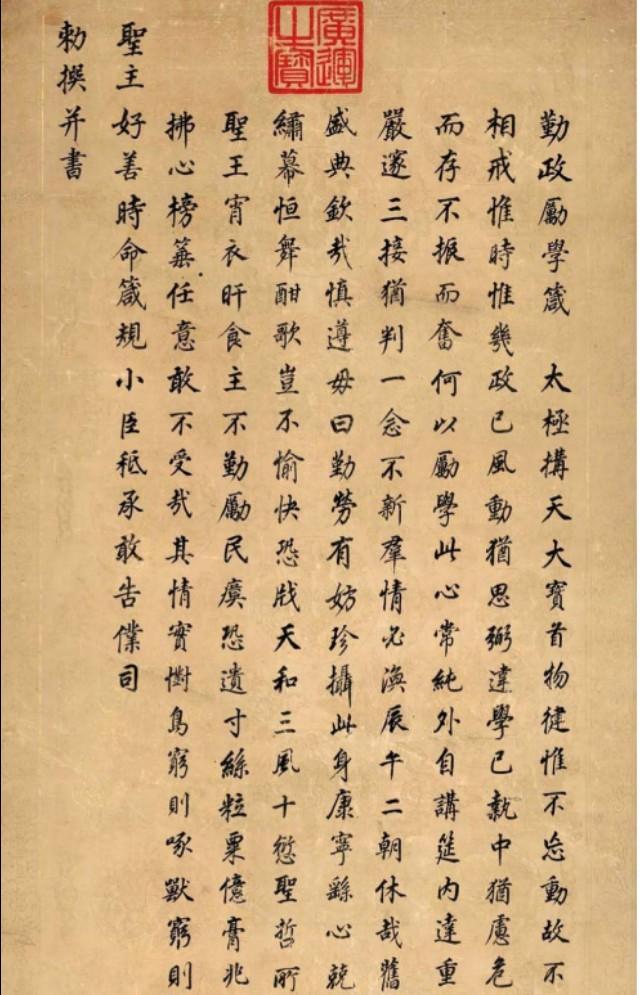 廣運之寶
勤政勵學箴　太極構天大寶首物健惟不忘動故不
相戒惟時惟幾政已風動猶思弼違學已執中猶慮危
而存不振而奮何以勵學此心常純外自講筵內達重
嚴邃三接猶判一念不新羣情必渙辰午二朝休哉舊
盛典欽哉慎遵毋曰勤勞有妨珍攝此身康寧繇心兢
繡幕恒舞酣歌豈不愉快恐戕天和三風十愆聖哲所
聖王宵衣旰食主不勤勵民瘼恐遺寸絲粒粟億膏兆
拂心榜箠任意敢不受哉其情實慟鳥窮則啄獸窮則
聖主好善時命箴規小臣秪承敢告僕司
勅撰并書